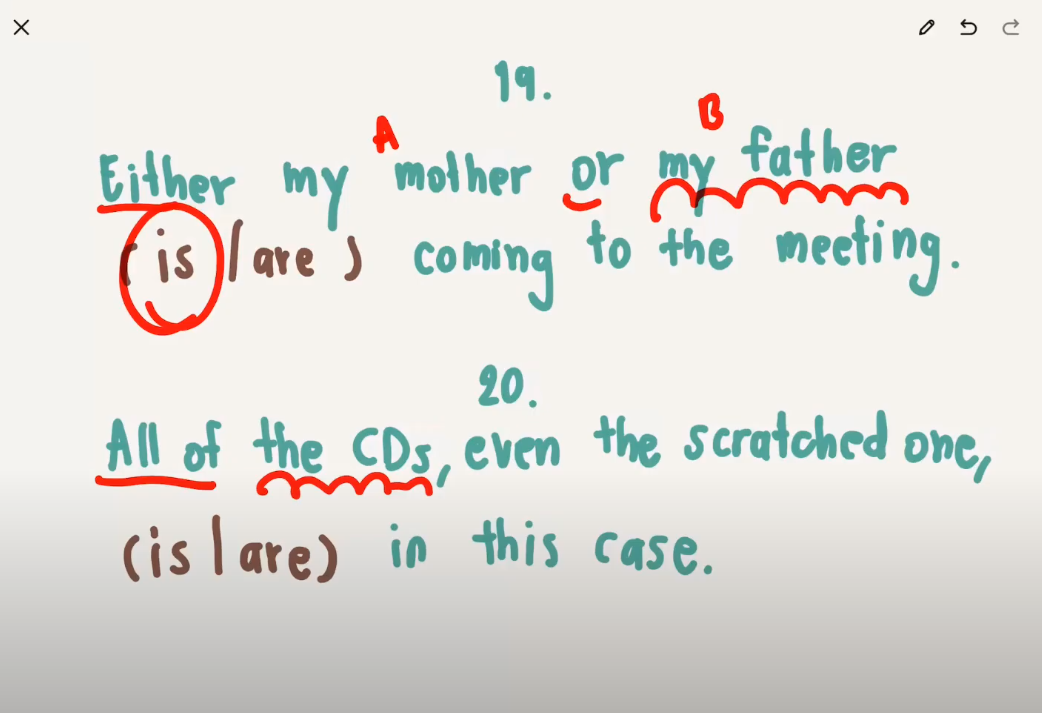 19.
A B
Either my mother or my father
(is | are) coming to the meeting.
20.
All of the CDs, even the scratched one,
(is | are) in this case.